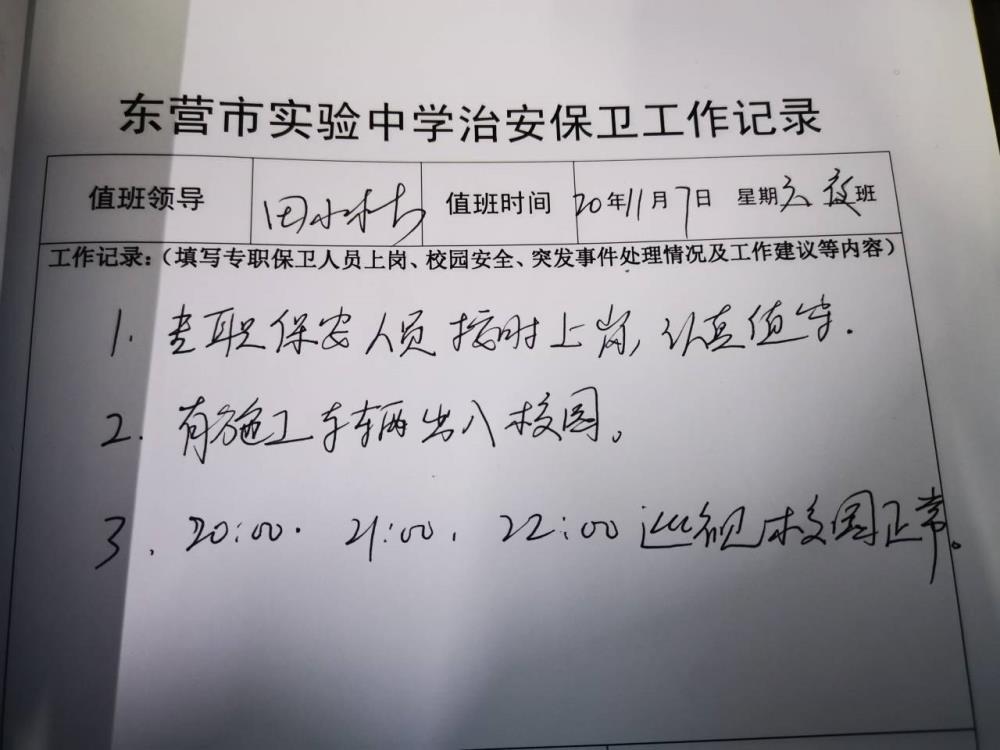 东营市实验中学治安保卫工作记录
值班领导 田水林 值班时间 20年11月7日 星期六 夜班
工作记录:（填写专职保卫人员上岗、校园安全、突发事件处理情况及工作建议等内容）
1. 专职保安人员按时上岗,认真值守.
2. 有施工车辆出入校园。
3. 20:00. 21:00. 22:00巡视校园正常。